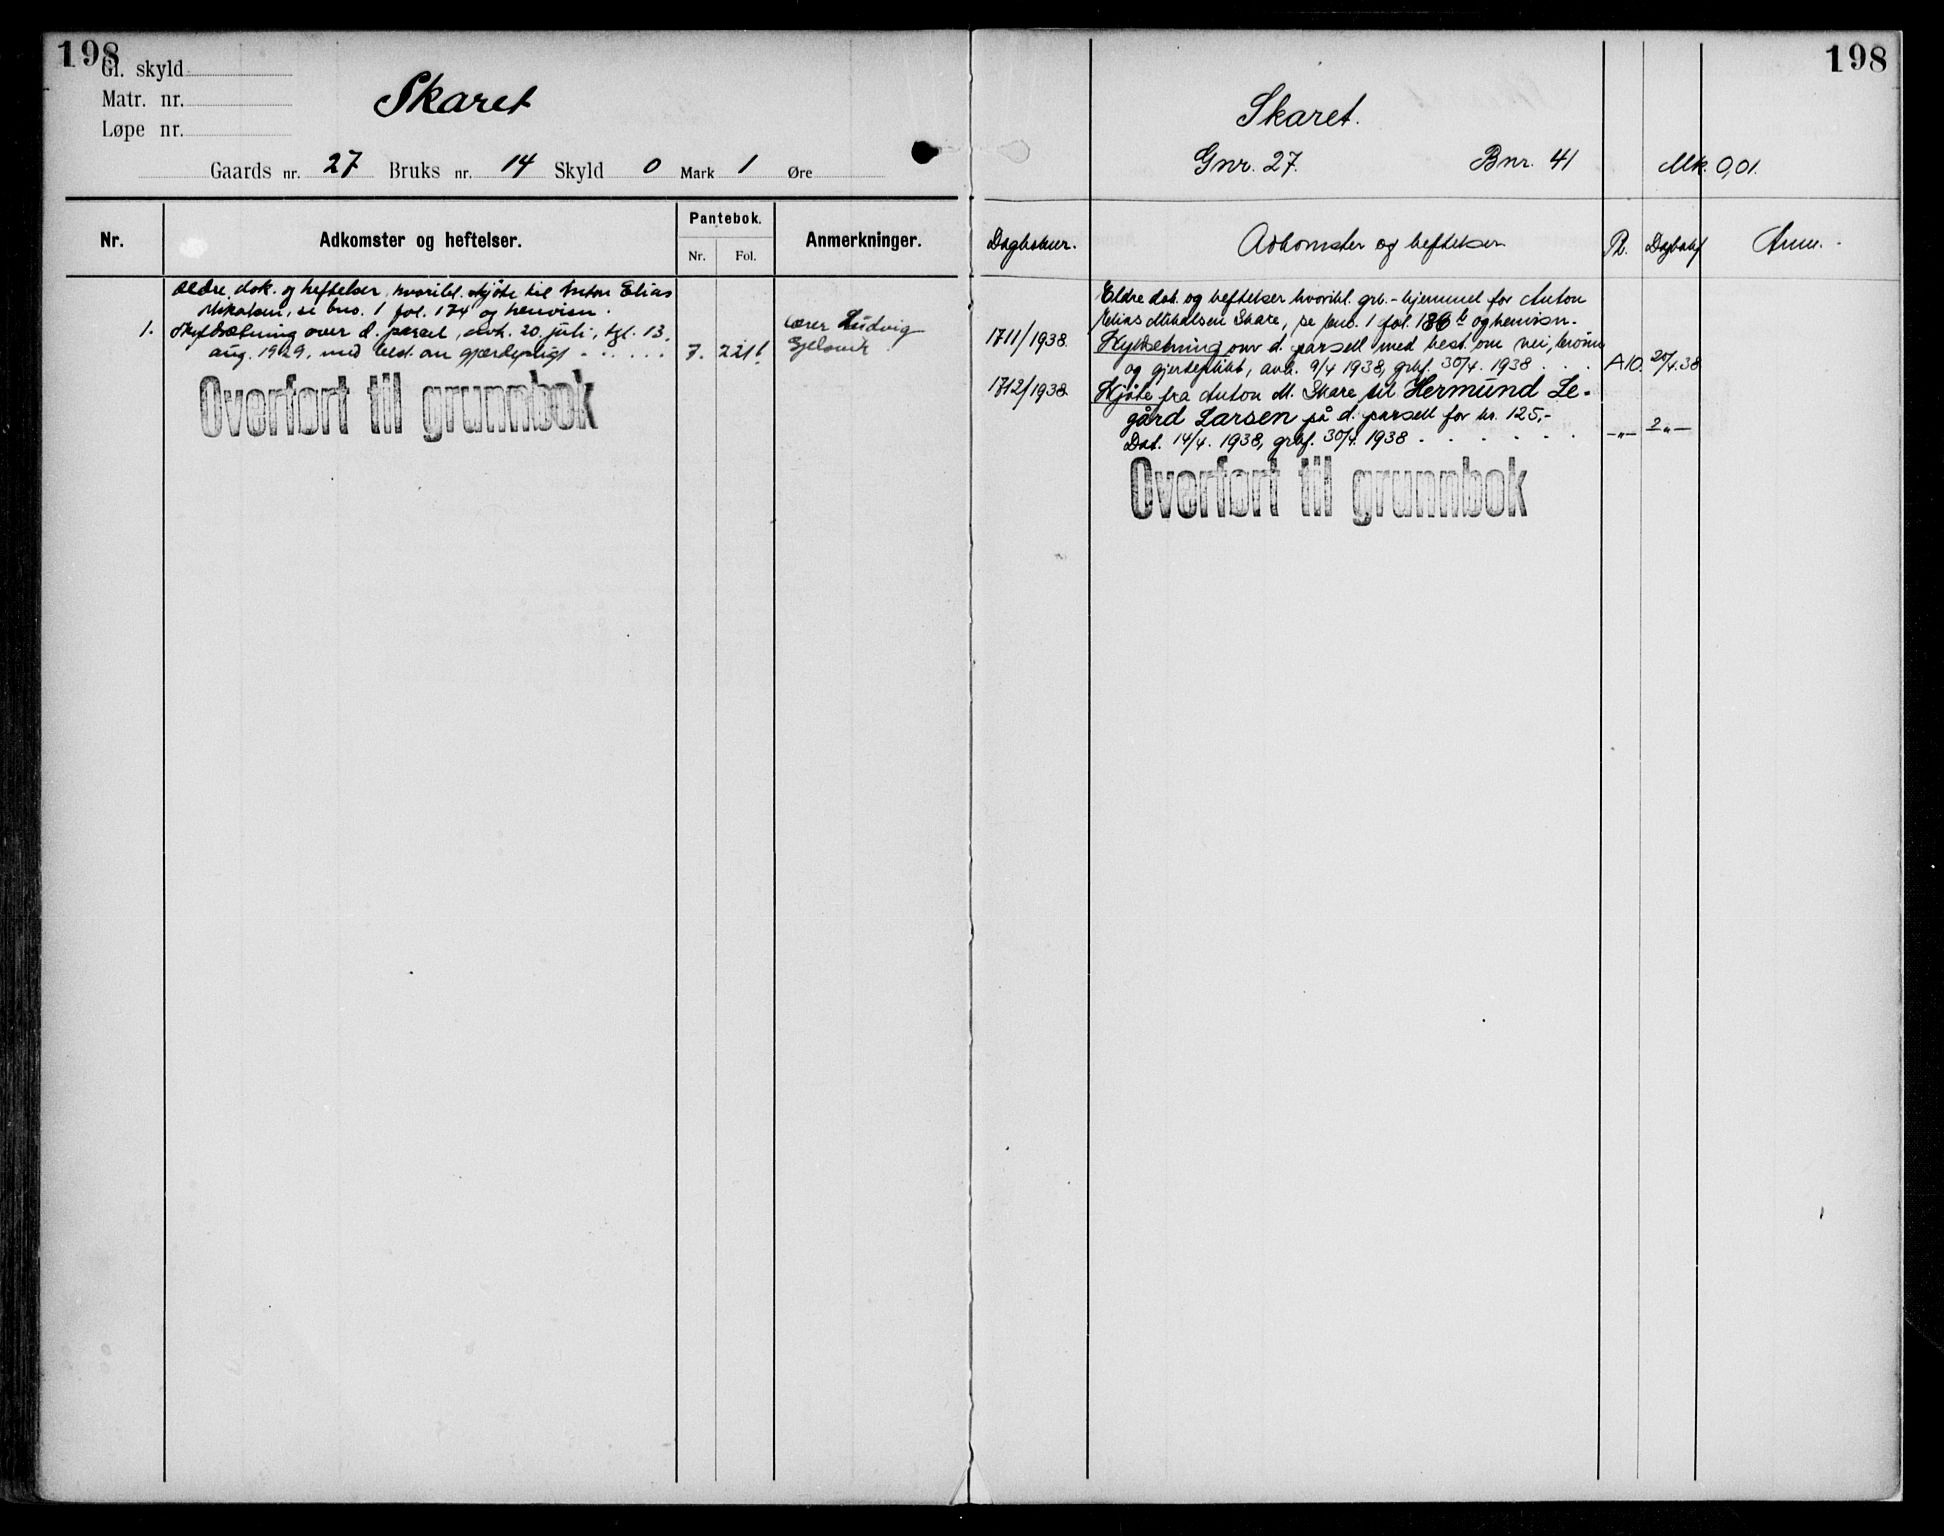 198
Gl. skyld
Matr. nr.
Løpe nr.
Skaret
Gaards nr. 27 Bruks nr. 14 Skyld 0 Mark 1 Øre
Nr.
Adkomster og heftelser.
Pantebok.
Nr. Fol.
Anmerkninger.
Ældre dok. og heftelser, hvoribl. skjöte til Anton Elias
Mikalsen, se bno. 1 fol. 174 og henvisn.
1. Skyldsætning over d. parcel, avh. 20. juli, tgl. 13.
aug. 1929, med best. om gjærdepligt . . . . . . 7. 221b
Overført til grunnbok
Ludvig
198
Skaret.
Gnr. 27. Bnr. 41 Mk. 0,01.
Dagboknr.
Adkomster og heftelser
Pb.
Dagbokf
Anm.
Eldre dok. og heftelser hvoribl. grb.-hjemmel for Anton
Elias Mikalsen Skare, se bno. 1 fol. 186 b og henvisn.
1711/1938. Skyldsetning over d. parsell med best. om vei, brönn
og gjerdeplikt, avh. 9/4 1938, grbf. 30/4. 1938 . . . A10. 20/4.38
1712/1938 Skjöte fra Anton M. Skare til Hermund Le-
gård Larsen på d. parsell for kr. 125,-
Dat. 14/4. 1938, grbf. 30/4. 1938 . . . . . . —„— 2 „—
Overført til grunnbok